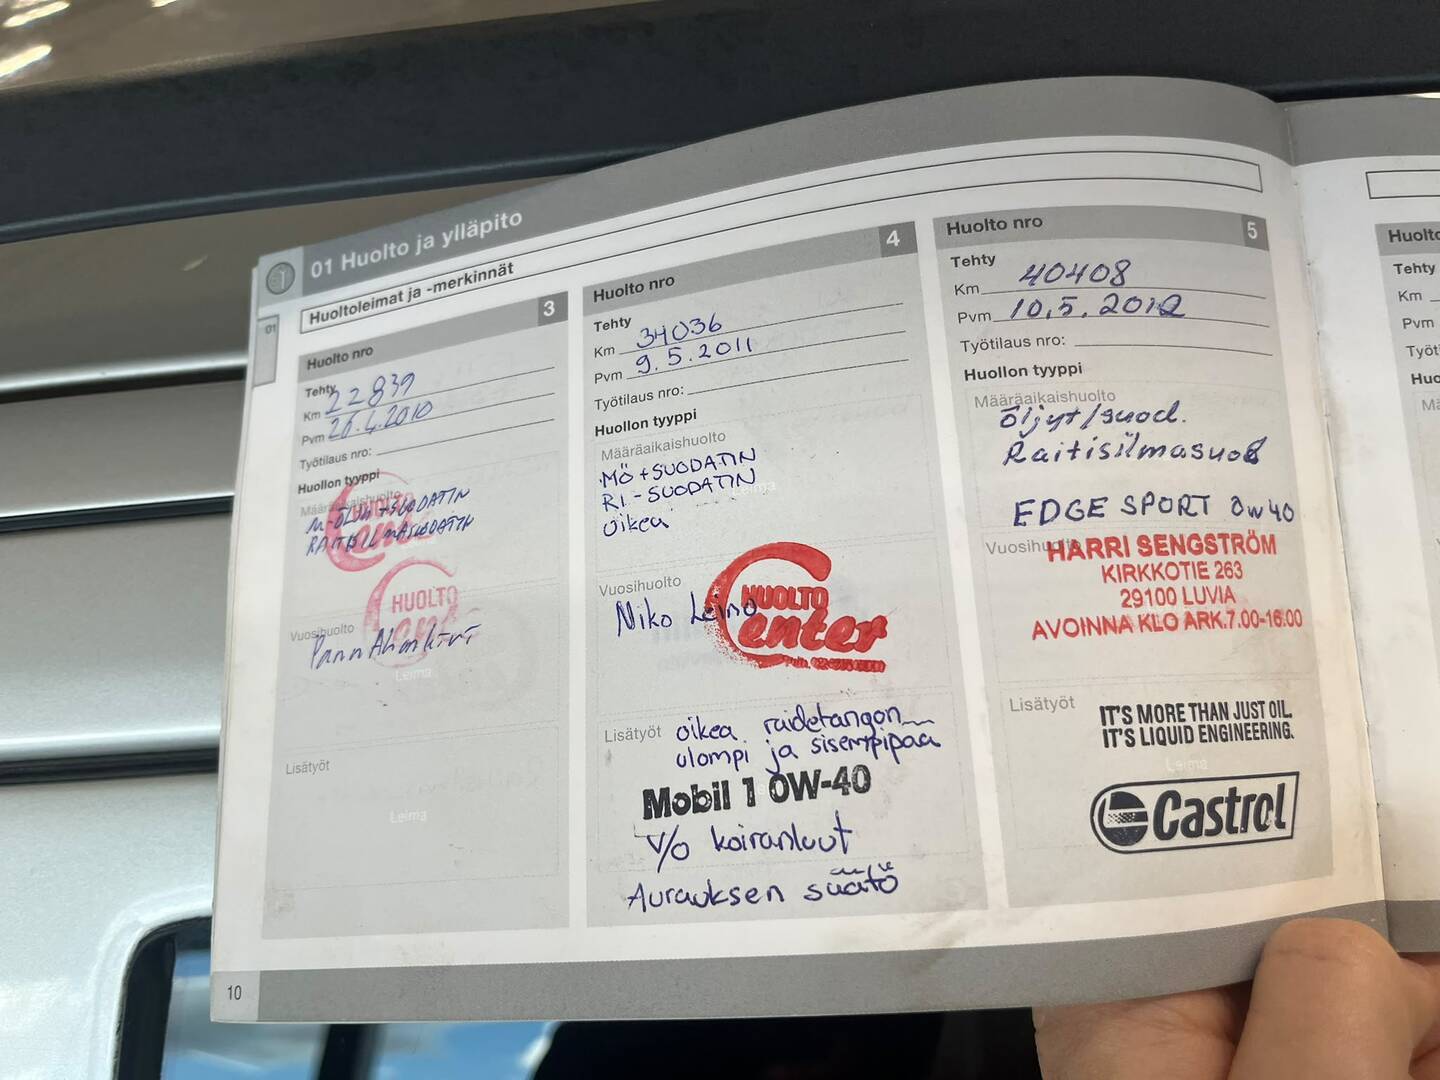 01 Huolto ja ylläpito
01
Huoltoleimat ja -merkinnät
Huolto nro 3
Tehty
Km 22839
Pvm 26.4.2010
Työtilaus nro:
Huollon tyyppi
Määräaikaishuolto
M-ÖLJY+SUODATIN
RAITISILMASUODATIN
HUOLTO
Center
HUOLTO
Center
Vuosihuolto
Leima
Lisätyöt
Leima
Huolto nro 4
Tehty
Km 34036
Pvm 9.5.2011
Työtilaus nro:
Huollon tyyppi
Määräaikaishuolto
MÖ+SUODATIN
RI-SUODATIN
Leima
oikea
Vuosihuolto
Niko Leino
HUOLTO
Center
Lisätyöt
oikea raidetangon
ulompi ja sisempipää
Mobil 1 0W-40
V/O koiranluut
Aurauksen säätö
Huolto nro 5
Tehty
Km 40408
Pvm 10.5.2012
Työtilaus nro:
Huollon tyyppi
Määräaikaishuolto
Öljyt/suod.
Raitisilmasuod
EDGE SPORT 0w40
Vuosihuolto
HARRI SENGSTRÖM
KIRKKOTIE 263
29100 LUVIA
AVOINNA KLO ARK.7.00-16.00
Lisätyöt
IT'S MORE THAN JUST OIL.
IT'S LIQUID ENGINEERING.
Leima
Castrol
10
Huolto
Tehty
Km
Pvm